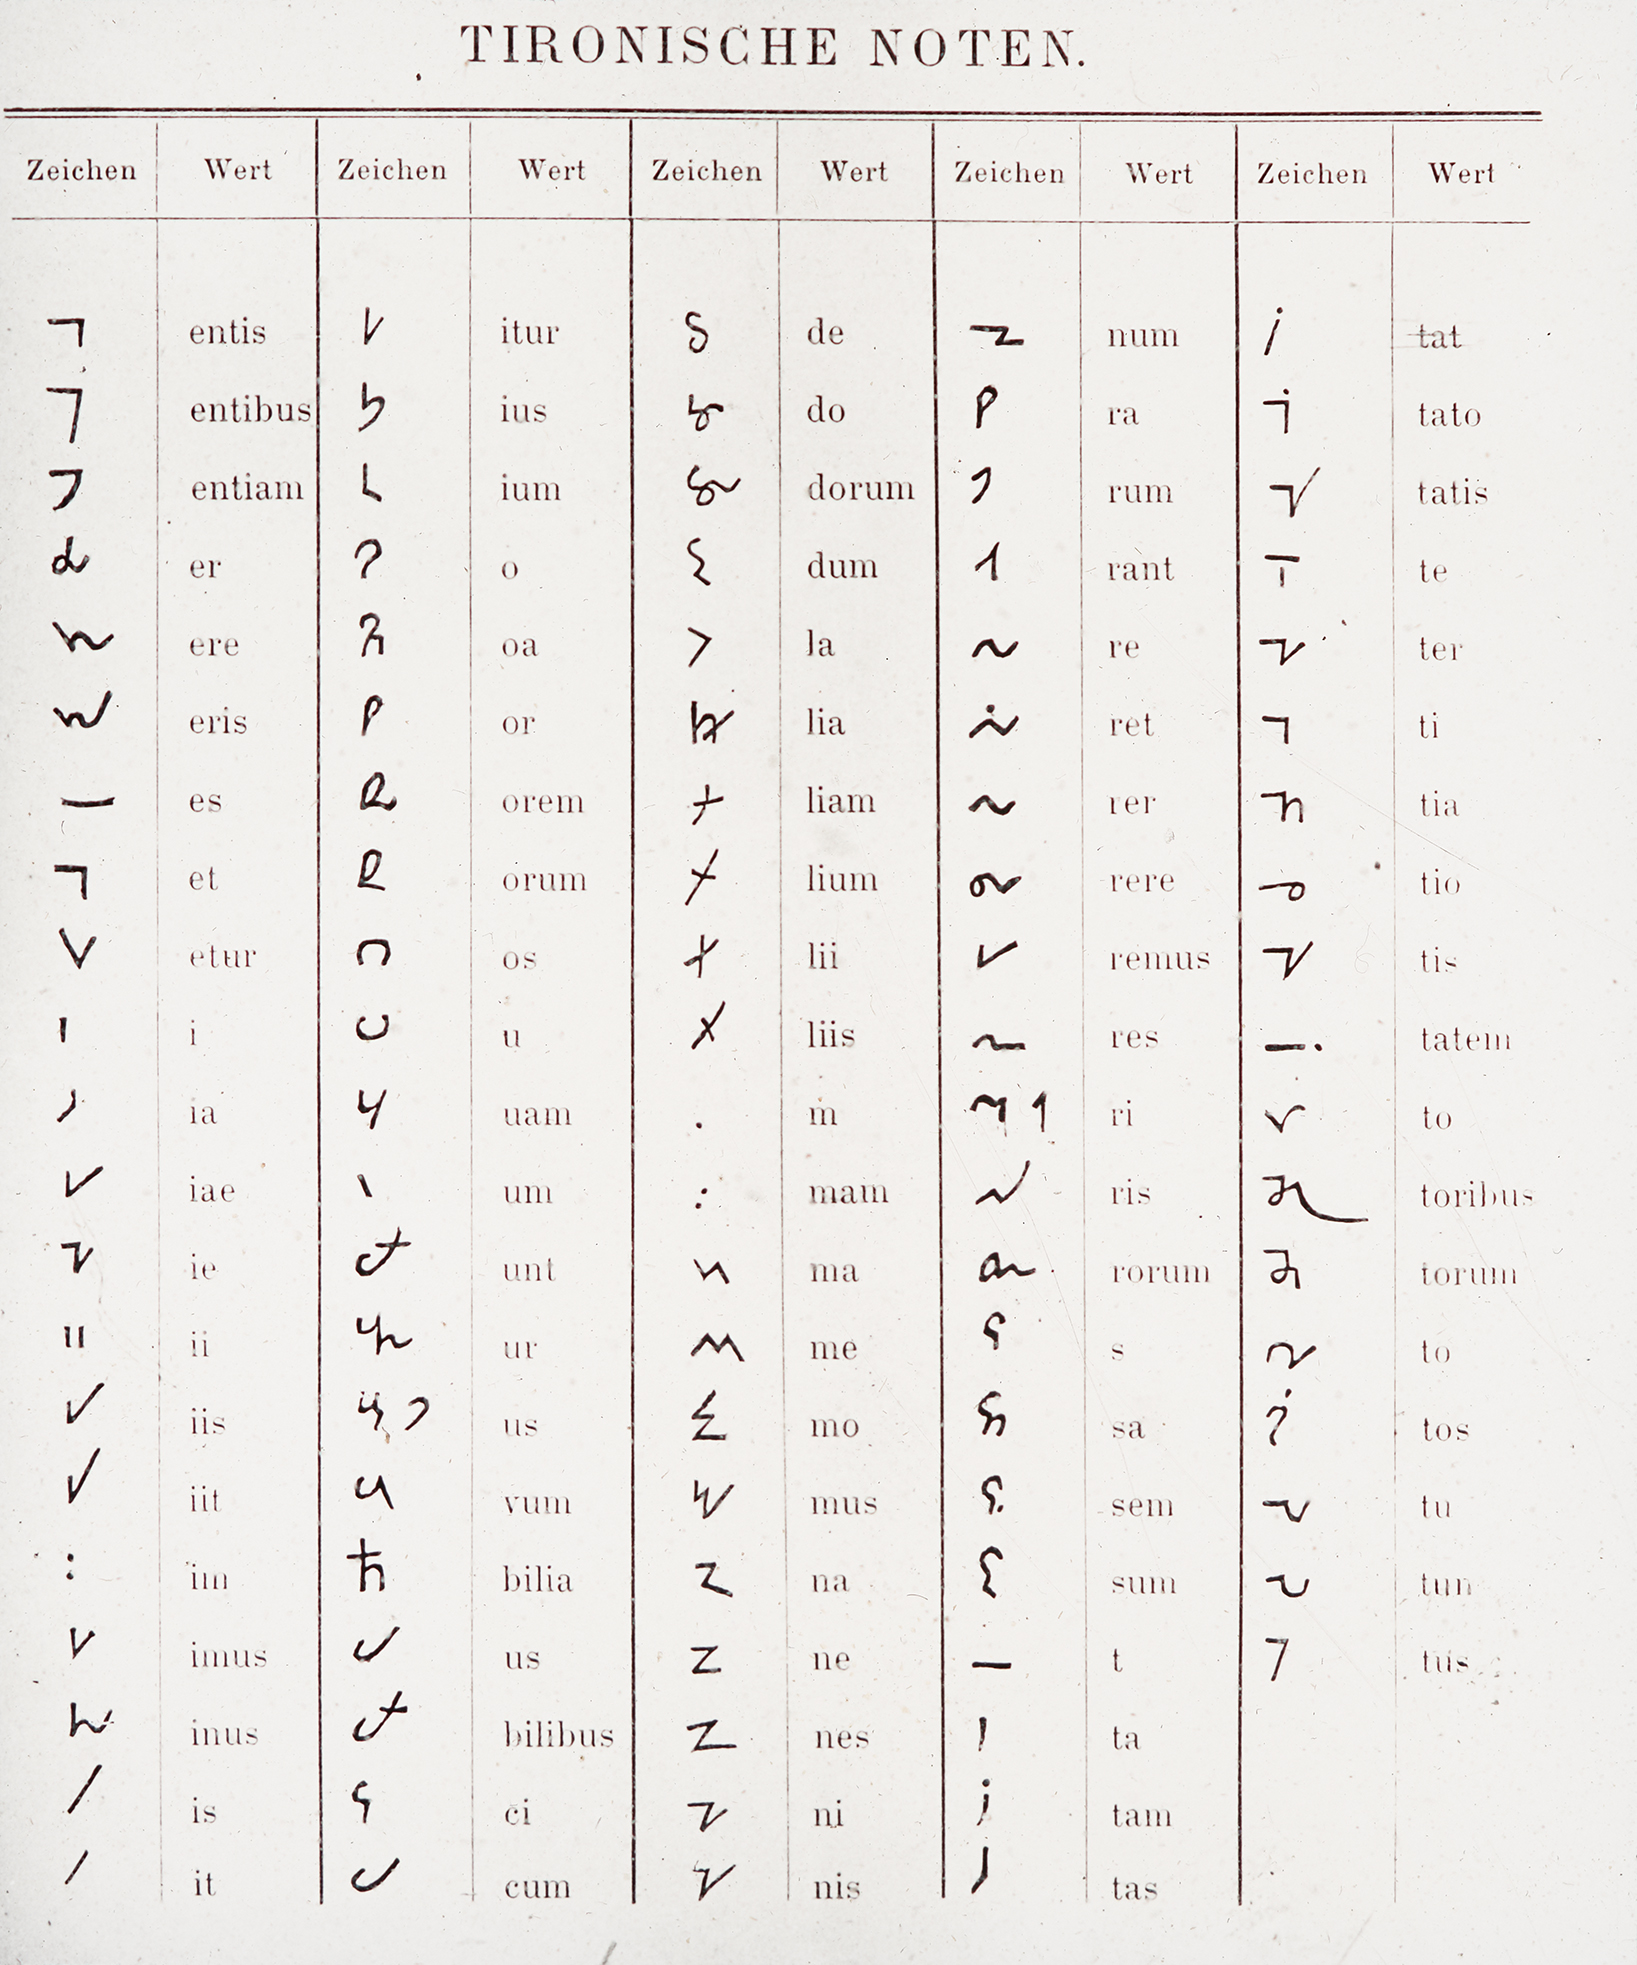 TIRONISCHE NOTEN.
Zeichen Wert Zeichen Wert Zeichen Wert Zeichen Wert Zeichen Wert
entis itur de num tat
entibus ius do ra tato
entiam ium dorum rum tatis
er o dum rant te
ere oa la re ter
eris or lia ret ti
es orem liam rer tia
et orum lium rere tio
etur os lii remus tis
i u liis res tatem
ia uam m ri to
iae um mam ris toribus
ie unt ma rorum torum
ii ur me s to
iis us mo sa tos
iit vum mus sem tu
im bilia na sum tun
imus us ne t tus
inus bilibus nes ta
is ci ni tam
it cum nis tas